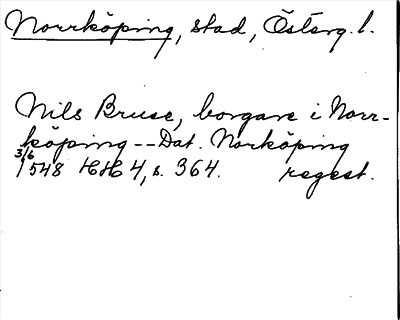 Norrköping, stad, Österg. l.
Nils Bruse, borgare i Norr-
köping -- Dat. Norköping
3/6 1548 HH 4, s. 364. regest.